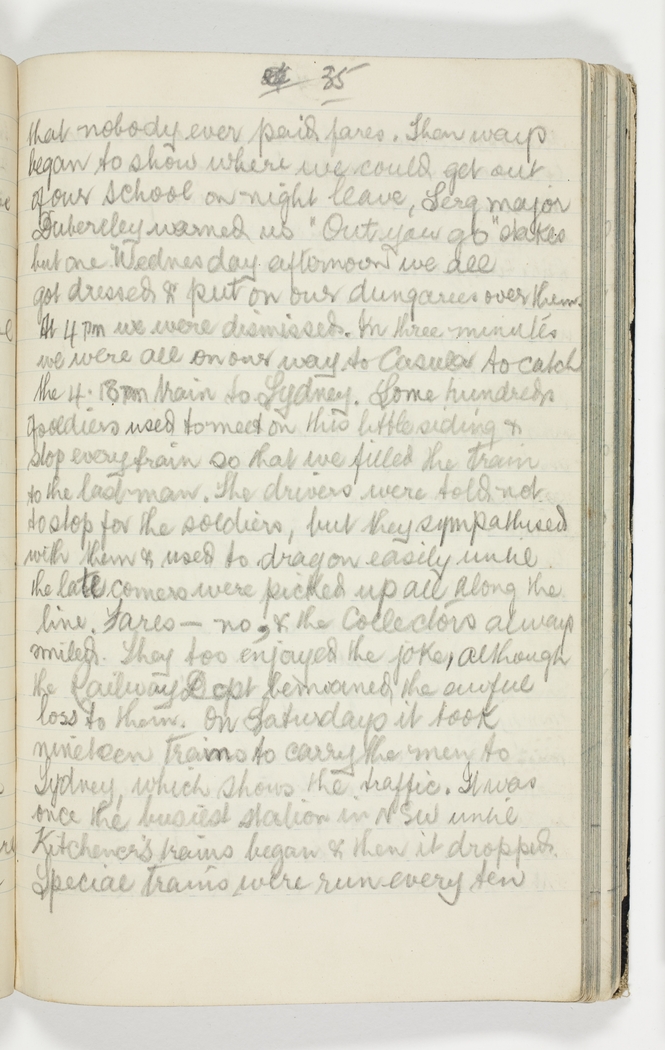 35
that nobody ever paid fares. Then ways
began to show where we could get out
of our school on night leave, Serg major
warned us "Out you go" stakes
but one Wednesday afternoon we all
got dressed & put on our dungarees over them.
At 4 pm we were dismissed. In three minutes
we were all on our way to Casula to catch
the 4.18pm train to Sydney. Some hundreds
of soldiers used to meet on this little siding &
stop every train so that we filled the train
to the last man. The drivers were told not
to stop for the soldiers, but they sympathised
with them & used to drag on easily until
the late comers were picked up all along the
line. Fares — no, & the Collectors always
smiled. They too enjoyed the joke, although
the Railway Dept bemoaned the awful
loss to them. On Saturdays it took
nineteen trains to carry the men to
Sydney, which shows the traffic. It was
once the busiest station in NSW until
Kitchener's trains began & then it dropped.
Special trains were run every ten